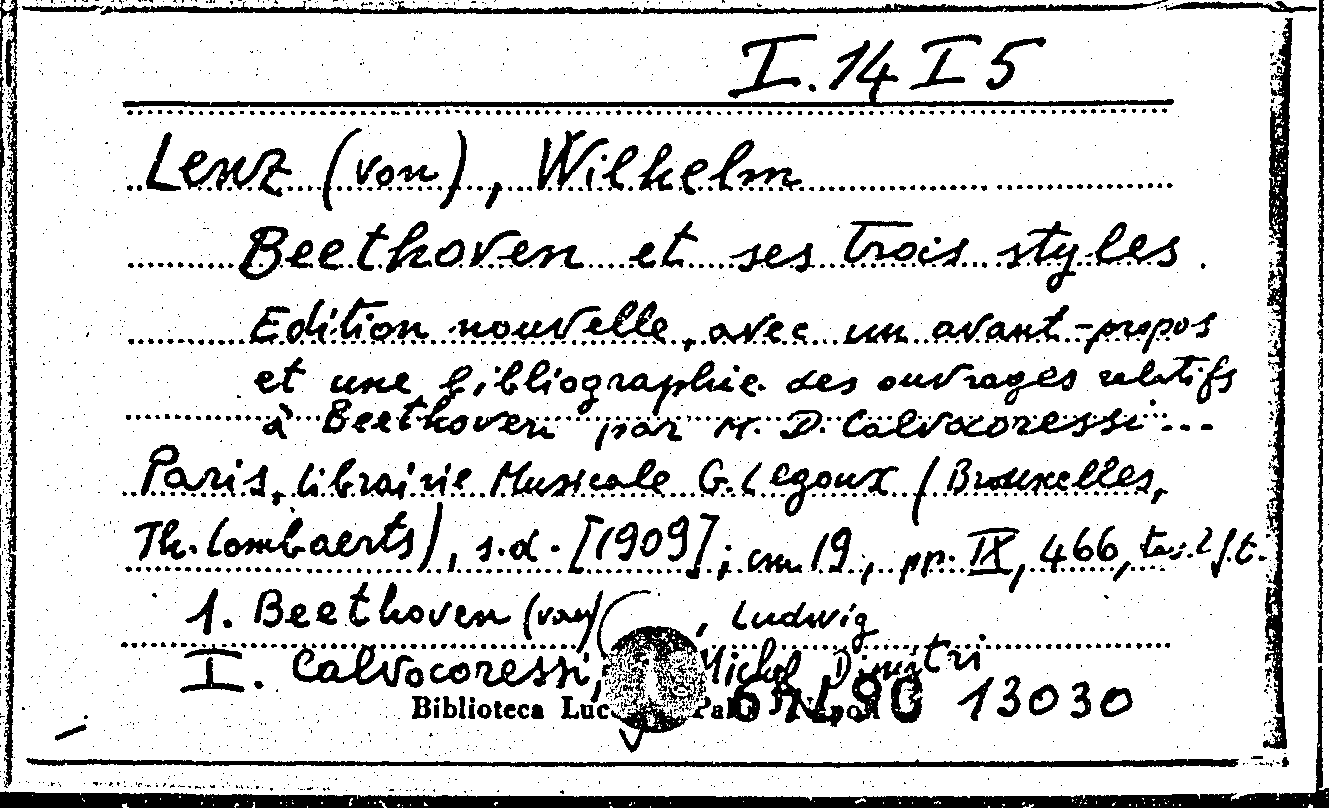 I.14 I 5
Lenz (von), Wilhelm
Beethoven et ses trois styles.
Edition nouvelle, avec un avant-propos
et une bibliographie des ouvrages relatifs
à Beethoven par M. D. Calvocoressi...
Paris, Librairie Musicale G. Legoux (Brouxelles,
Th. Lombaerts), s.d. [1909]; cm. 19, pp. IX, 466, tav. 2 f.t.
1. Beethoven (van), Ludwig
I. Calvocoressi, Michel Dimitri
Biblioteca 13030